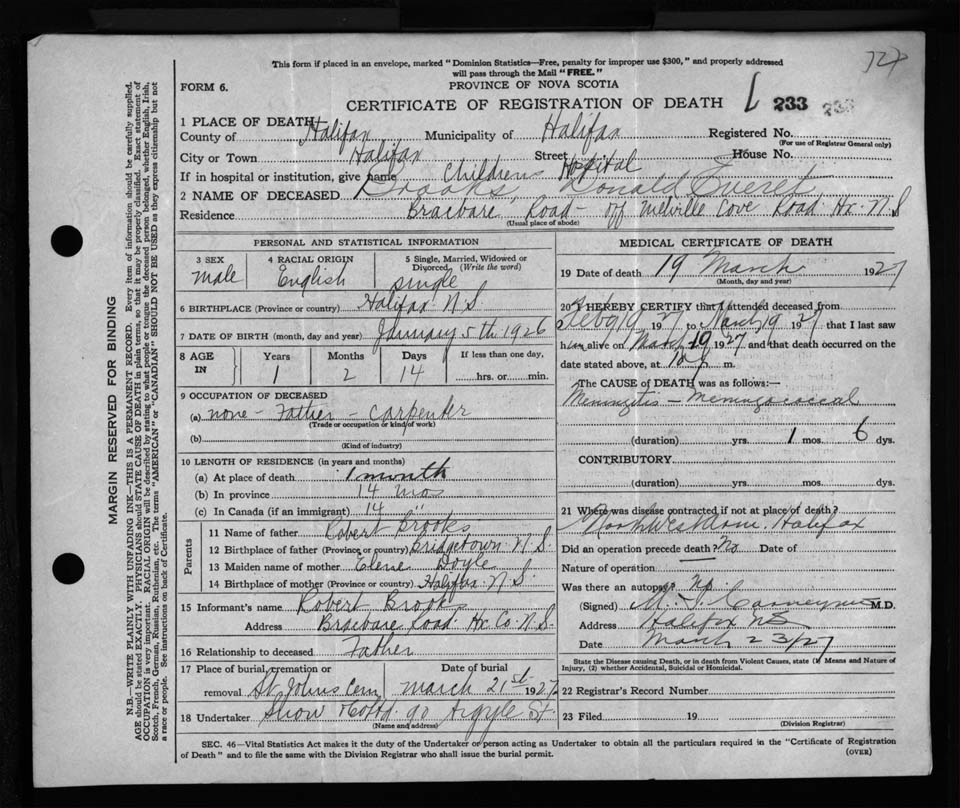 727
This form if placed in an envelope, marked "Dominion Statistics—Free, penalty for improper use $300," and properly addressed
will pass through the Mail "FREE."
FORM 6.
PROVINCE OF NOVA SCOTIA
CERTIFICATE OF REGISTRATION OF DEATH
L 233 233
1 PLACE OF DEATH
County of Halifax Municipality of Halifax Registered No.
(For use of Registrar General only)
City or Town Halifax Street House No.
If in hospital or institution, give name Childrens Hospital
2 NAME OF DECEASED Brooks, Donald Everet
Residence Braebare Road - off Melville Cove Road Hx. N.S
(Usual place of abode)
PERSONAL AND STATISTICAL INFORMATION
3 SEX 4 RACIAL ORIGIN 5 Single, Married, Widowed or
Divorced (Write the word)
male English single
6 BIRTHPLACE (Province or country) Halifax N.S.
7 DATE OF BIRTH (month, day and year) January 5th 1926
8 AGE IN Years Months Days If less than one day,
1 2 14 hrs. or min.
9 OCCUPATION OF DECEASED
(a) none - Father - carpenter
(Trade or occupation or kind of work)
(b)
(Kind of industry)
10 LENGTH OF RESIDENCE (in years and months)
(a) At place of death 1 month
(b) In province 14 mos
(c) In Canada (if an immigrant) 14 "
Parents
11 Name of father Robert Brooks
12 Birthplace of father (Province or country) Bridgetown N.S.
13 Maiden name of mother Elene Doyle
14 Birthplace of mother (Province or country) Halifax N.S.
15 Informant's name Robert Brooks
Address Braebare Road Hx. Co. N.S.
16 Relationship to deceased Father
17 Place of burial, cremation or Date of burial
removal St Johns Cem march 21st 1927
18 Undertaker Snow & Co Ltd 90 Argyle St.
(Name and address)
MEDICAL CERTIFICATE OF DEATH
19 Date of death 19 March 1927
(Month, day and year)
20 I HEREBY CERTIFY that I attended deceased from
Feb 19 1927 to Mar 19 1927 that I last saw
him alive on Mar 19 1927 and that death occurred on the
date stated above, at m.
The CAUSE of DEATH was as follows:—
Meningitis - Meningococcal
(duration) yrs. 1 mos. 6 dys.
CONTRIBUTORY
(duration) yrs. mos. dys.
21 Where was disease contracted if not at place of death?
North West Arm. Halifax
Did an operation precede death? No Date of
Nature of operation
Was there an autopsy? No
(Signed) M.D.
Address Halifax NS
Date March 23/27
State the Disease causing Death, or in death from Violent Causes, state (1) Means and Nature of
Injury, (2) whether Accidental, Suicidal or Homicidal.
22 Registrar's Record Number
23 Filed 19
(Division Registrar)
SEC. 46—Vital Statistics Act makes it the duty of the Undertaker or person acting as Undertaker to obtain all the particulars required in the "Certificate of Registration
of Death" and to file the same with the Division Registrar who shall issue the burial permit.
(OVER)
MARGIN RESERVED FOR BINDING
N.B.—WRITE PLAINLY WITH UNFADING INK—THIS IS A PERMANENT RECORD. Every item of information should be carefully supplied.
AGE should be stated EXACTLY. PHYSICIANS should STATE CAUSE OF DEATH in plain terms, so that it may be properly classified. Exact statement of
OCCUPATION is very important. RACIAL ORIGIN will be described by stating to what people or tongue the deceased person belonged, whether English, Irish,
Scotch, French, German, Russian, Ruthenian, etc. The terms "AMERICAN" or "CANADIAN" SHOULD NOT BE USED as they express citizenship but not
a race or people. See instructions on back of Certificate.